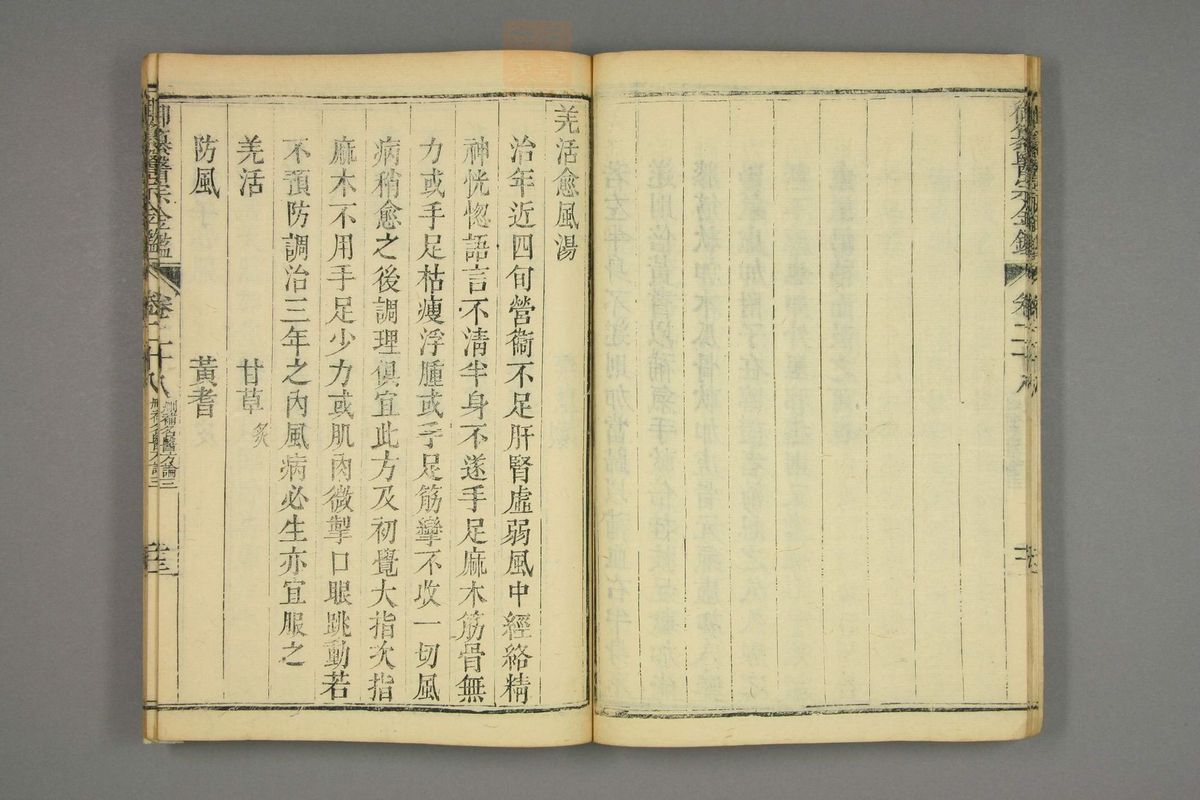 御纂醫宗金鑑
卷二十八
羌活愈風湯
治年近四旬營衞不足肝腎虛弱風中經絡精
神恍惚語言不清半身不遂手足麻木筋骨無
力或手足枯瘦浮腫或手足筋攣不收一切風
病稍愈之後調理俱宜此方及初覺大指次指
麻木不用手足少力或肌肉微掣口眼跳動若
不預防調治三年之內風病必生亦宜服之
羌活 甘草炙
防風 黃耆
御纂醫宗金鑑
卷二十八
刪補名醫方論三